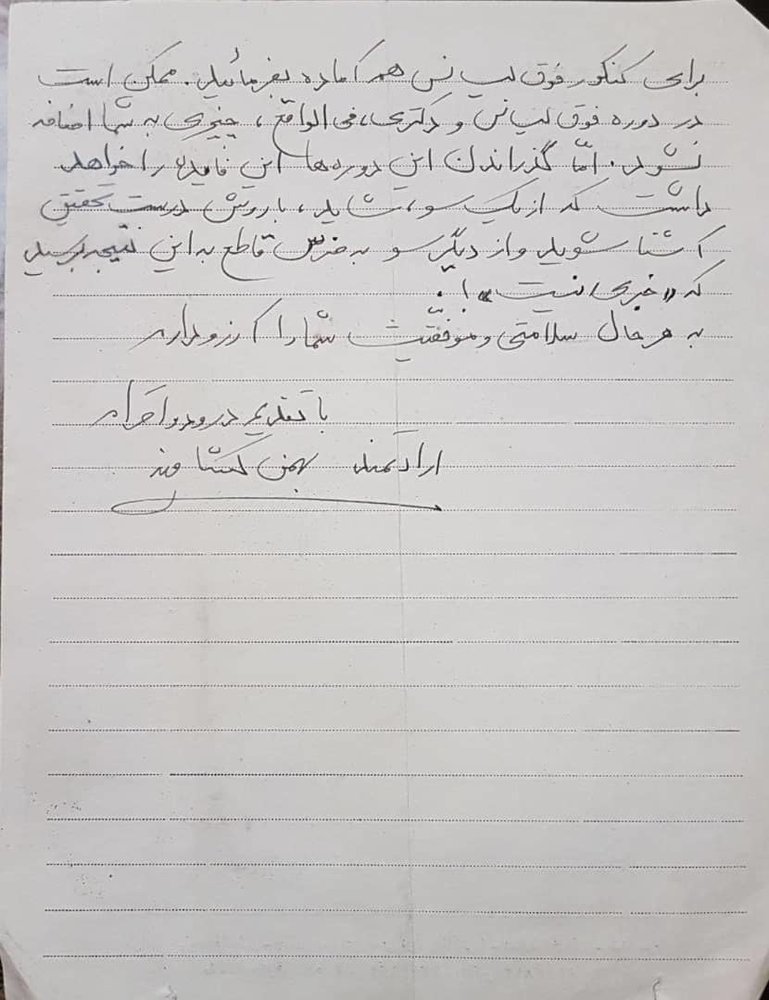 برای کنکور فوق لیسانس هم آماده بفرمائید. ممکن است
در دوره فوق لیسانس و دکتری، فی الواقع، چیزی به شما اضافه
نشود. امّا گذراندن این دوره‌ها این فایده را خواهد
داشت که از یک سو، شاید، با روش درست تحقیق
آشنا شوید و از دیگر سو به ضرس قاطع به این نتیجه برسید
که «خبری نیست»!.
به هر حال سلامتی و موفقّیت شما را آرزو دارم
با تقدیم درود و احترام
ارادتمند بهمن کشاورز